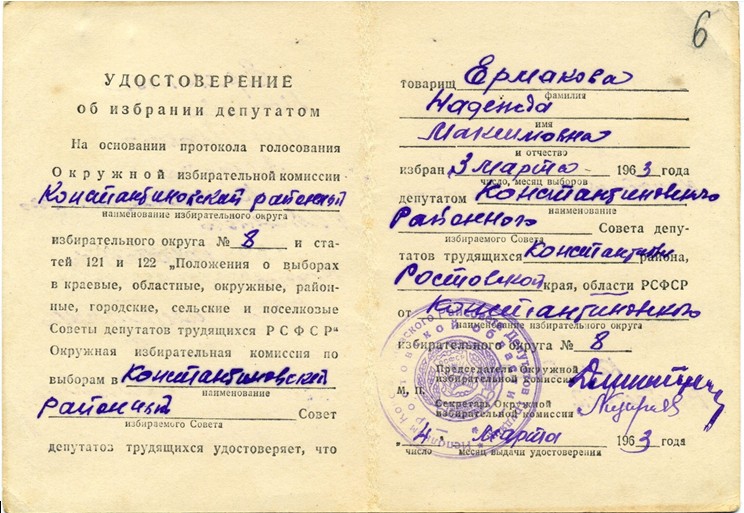 УДОСТОВЕРЕНИЕ
об избрании депутатом
На основании протокола голосования
Окружной избирательной комиссии
Константиновский районный
наименование избирательного округа
избирательного округа № 8 и ста-
тей 121 и 122 „Положения о выборах
в краевые, областные, окружные, район-
ные, городские, сельские и поселковые
Советы депутатов трудящихся РСФСР"
Окружная избирательная комиссия по
выборам в Константиновский
наименование
районный Совет
избираемого Совета
депутатов трудящихся удостоверяет, что
6
товарищ Ермакова
фамилия
Надежда
имя
Максимовна
и отчество
избран 3 марта 1963 года
число, месяц выборов
депутатом Константиновского
наименование
Районного Совета депу-
избираемого Совета
татов трудящихся Константин района,
Ростовской края, области РСФСР
от Константиновского
наименование избирательного округа
избирательного округа № 8
Председатель Окружной
избирательной комиссии
М. П.
Секретарь Окружной
избирательной комиссии
"4" марта 1963 года
число месяц выдачи удостоверения